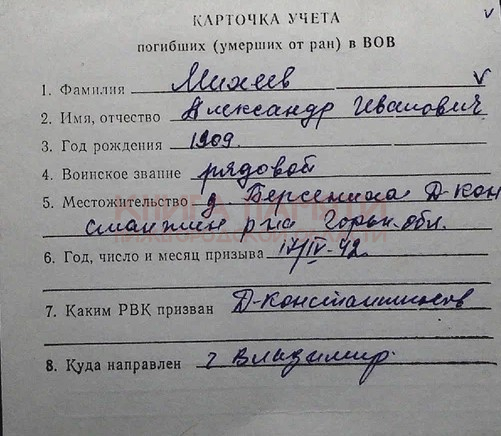 КАРТОЧКА УЧЕТА
погибших (умерших от ран) в ВОВ
1. Фамилия Михеев
2. Имя, отчество Александр Иванович
3. Год рождения 1909.
4. Воинское звание рядовой
5. Местожительство д. Берсениха Д-Кон
стантин р-на Горьк. обл.
КНИГА ПАМЯТИ
НИЖЕГОРОДСКОЙ ОБЛАСТИ
6. Год, число и месяц призыва 17/IV-42
7. Каким РВК призван Д-Константинов
8. Куда направлен г Владимир.